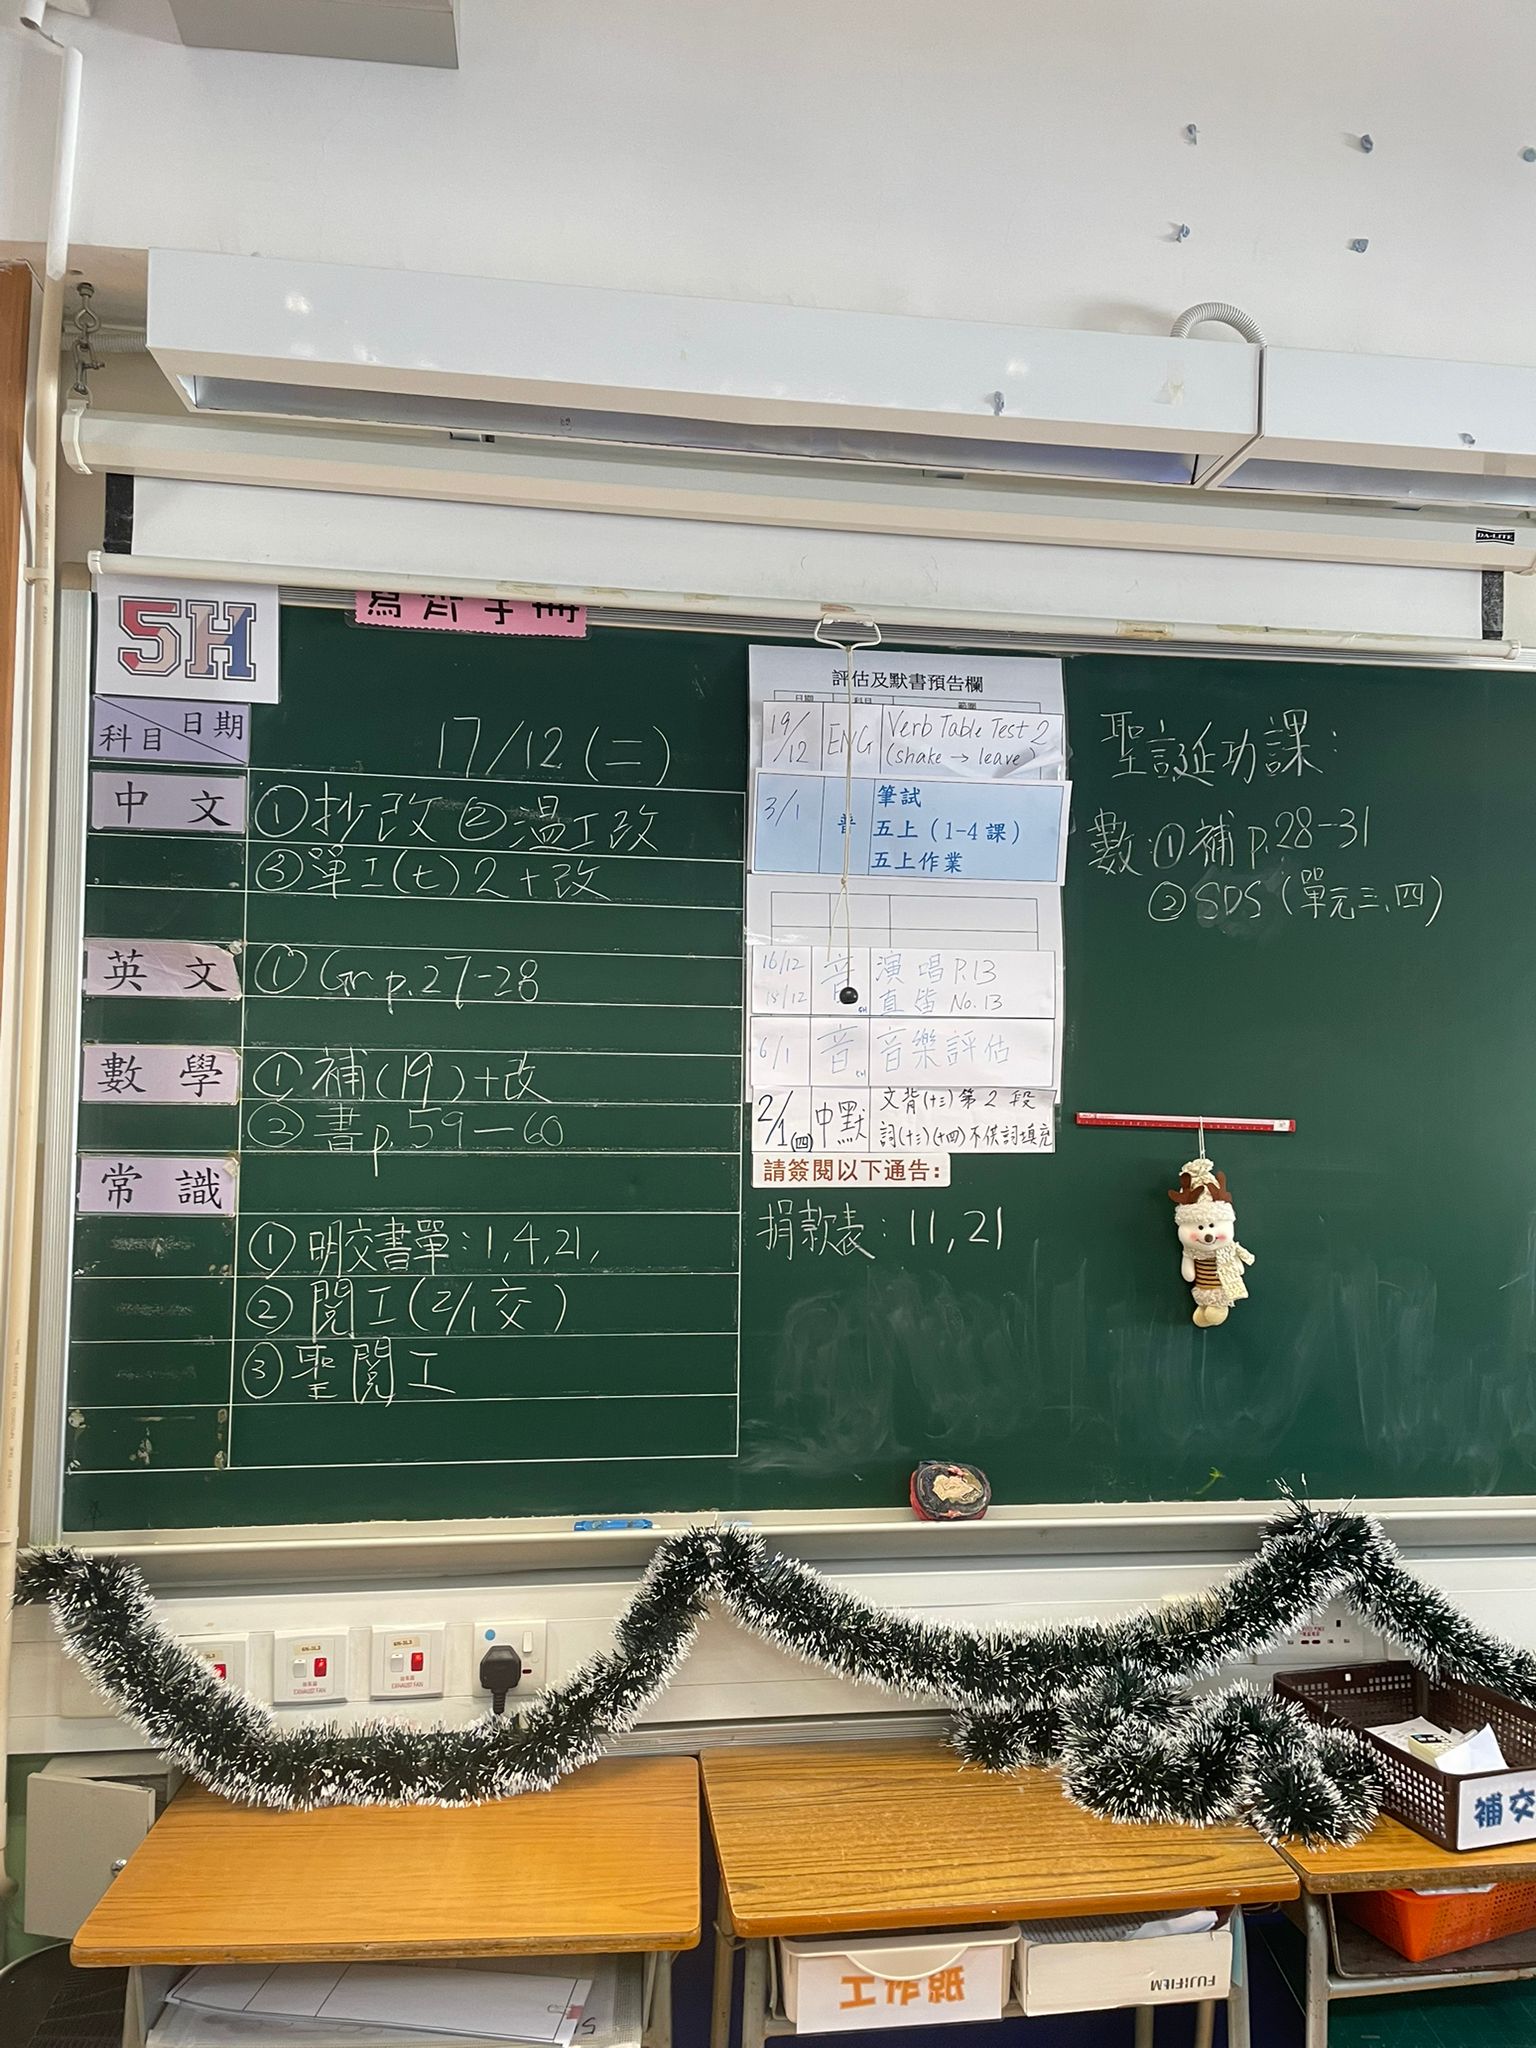 DA-LITE
5H
寫齊手冊
日期
科目
17/12(二)
中文
①抄改 ②溫工改
③單工(七)2+改
英文
①Gr p.27-28
數學
①補(19)+改
②書p.59-60
常識
①明交書單:1,4,21,
②閱工(2/1交)
③聖閱工
評估及默書預告欄
日期 科目 範圍
19/12 ENG Verb Table Test 2
(shake → leave)
3/1 普 筆試
五上(1-4課)
五上作業
16/12 音 演唱P.13
18/12 直笛 No.13
5H
6/1 音 音樂評估
5H
2/1(四) 中默 文背(十三)第2段
詞(十三)(十四)不供詞填充
請簽閱以下通告:
捐款表:11,21
聖誕功課:
數:①補p.28-31
②SDS(單元三、四)
EXHAUST FAN
EXHAUST FAN
補交
工作紙
FUJIFILM